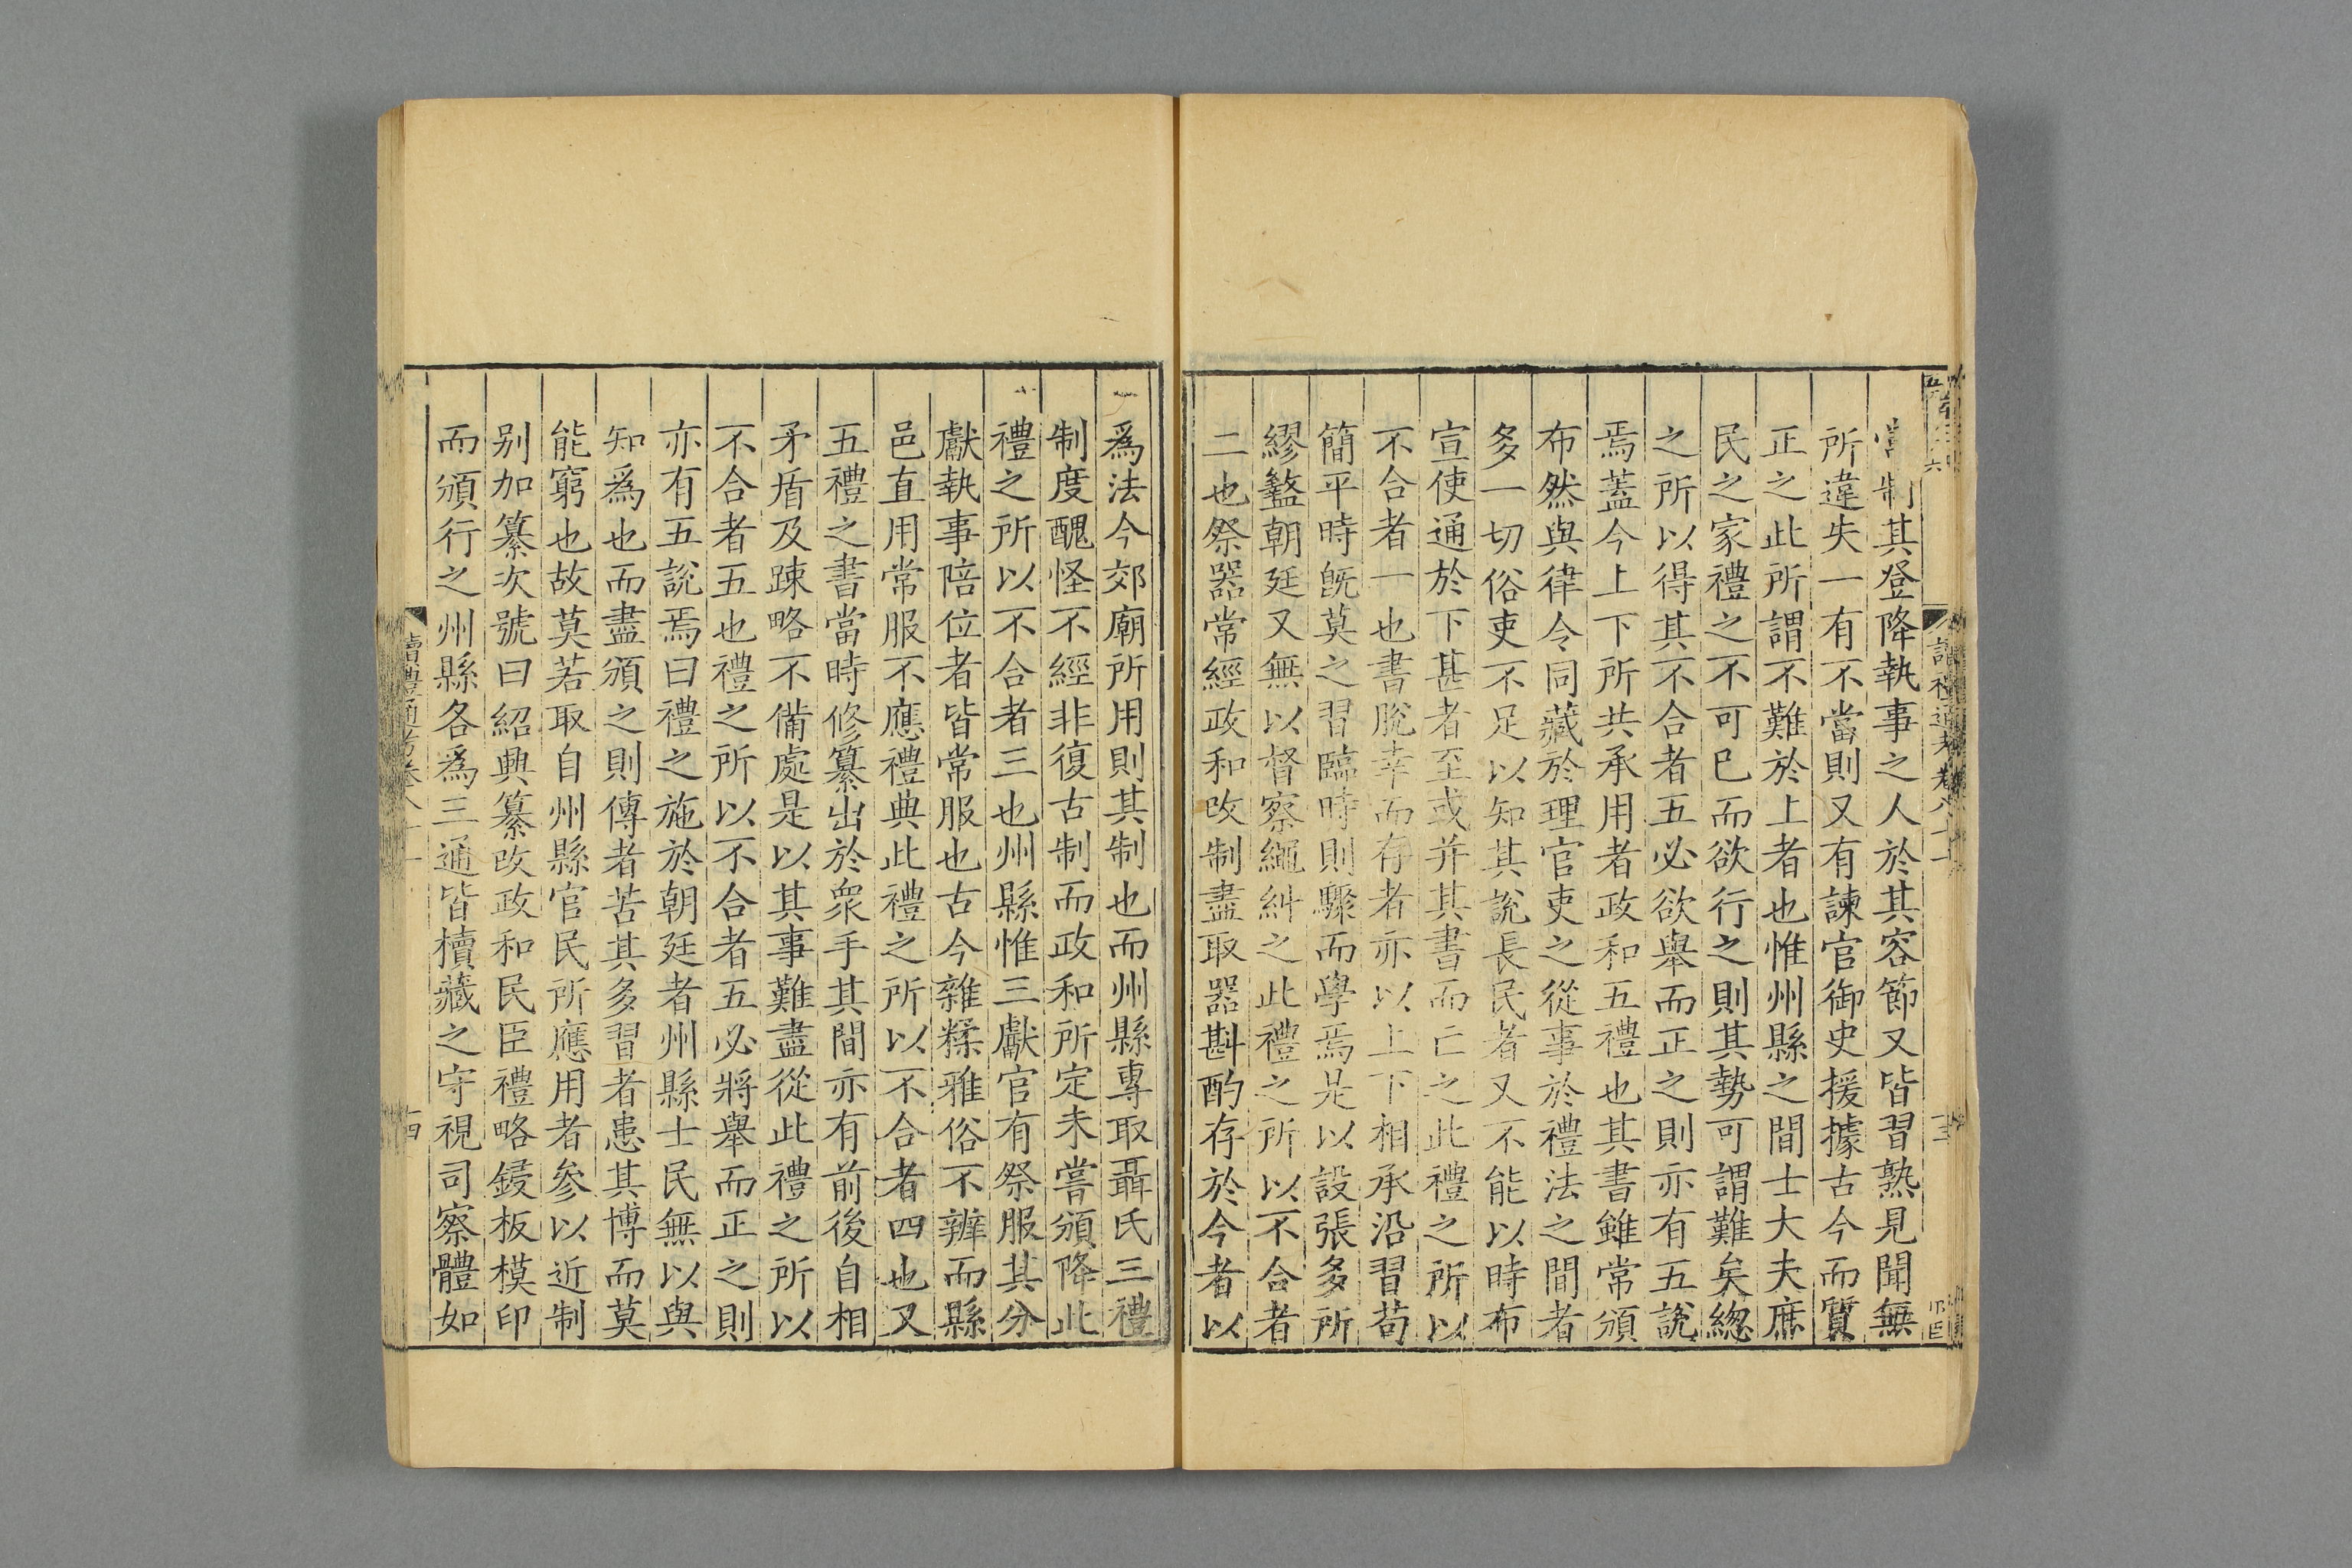 常制其登降執事之人於其容節又皆習熟見聞無
所違失一有不當則又有諫官御史援據古今而質
正之此所謂不難於上者也惟州縣之間士大夫庶
民之家禮之不可已而欲行之則其勢可謂難矣總
之所以得其不合者五必欲舉而正之則亦有五說
焉蓋今上下所共承用者政和五禮也其書雖常頒
布然與律令同藏於理官吏之從事於禮法之間者
多一切俗吏不足以知其說長民者又不能以時布
宣使通於下甚者至或并其書而亡之此禮之所以
不合者一也書脫幸而存者亦以上下相承沿習苟
簡平時旣莫之習臨時則驟而學焉是以設張多所
繆盭朝廷又無以督察繩糾之此禮之所以不合者
二也祭器常經政和改制盡取器斟酌存於今者以
爲法今郊廟所用則其制也而州縣專取聶氏三禮
制度醜怪不經非復古制而政和所定未嘗頒降此
禮之所以不合者三也州縣惟三獻官有祭服其分
獻執事陪位者皆常服也古今雜糅雅俗不辨而縣
邑直用常服不應禮典此禮之所以不合者四也又
五禮之書當時修纂出於衆手其間亦有前後自相
矛盾及踈略不備處是以其事難盡從此禮之所以
不合者五也禮之所以不合者五必將舉而正之則
亦有五說焉曰禮之施於朝廷者州縣士民無以與
知爲也而盡頒之則傳者苦其多習者患其博而莫
能窮也故莫若取自州縣官民所應用者參以近制
别加纂次號曰紹興纂改政和民臣禮略鋟板模印
而頒行之州縣各爲三通皆櫝藏之守視司察體如
讀禮通考卷八十一
十四